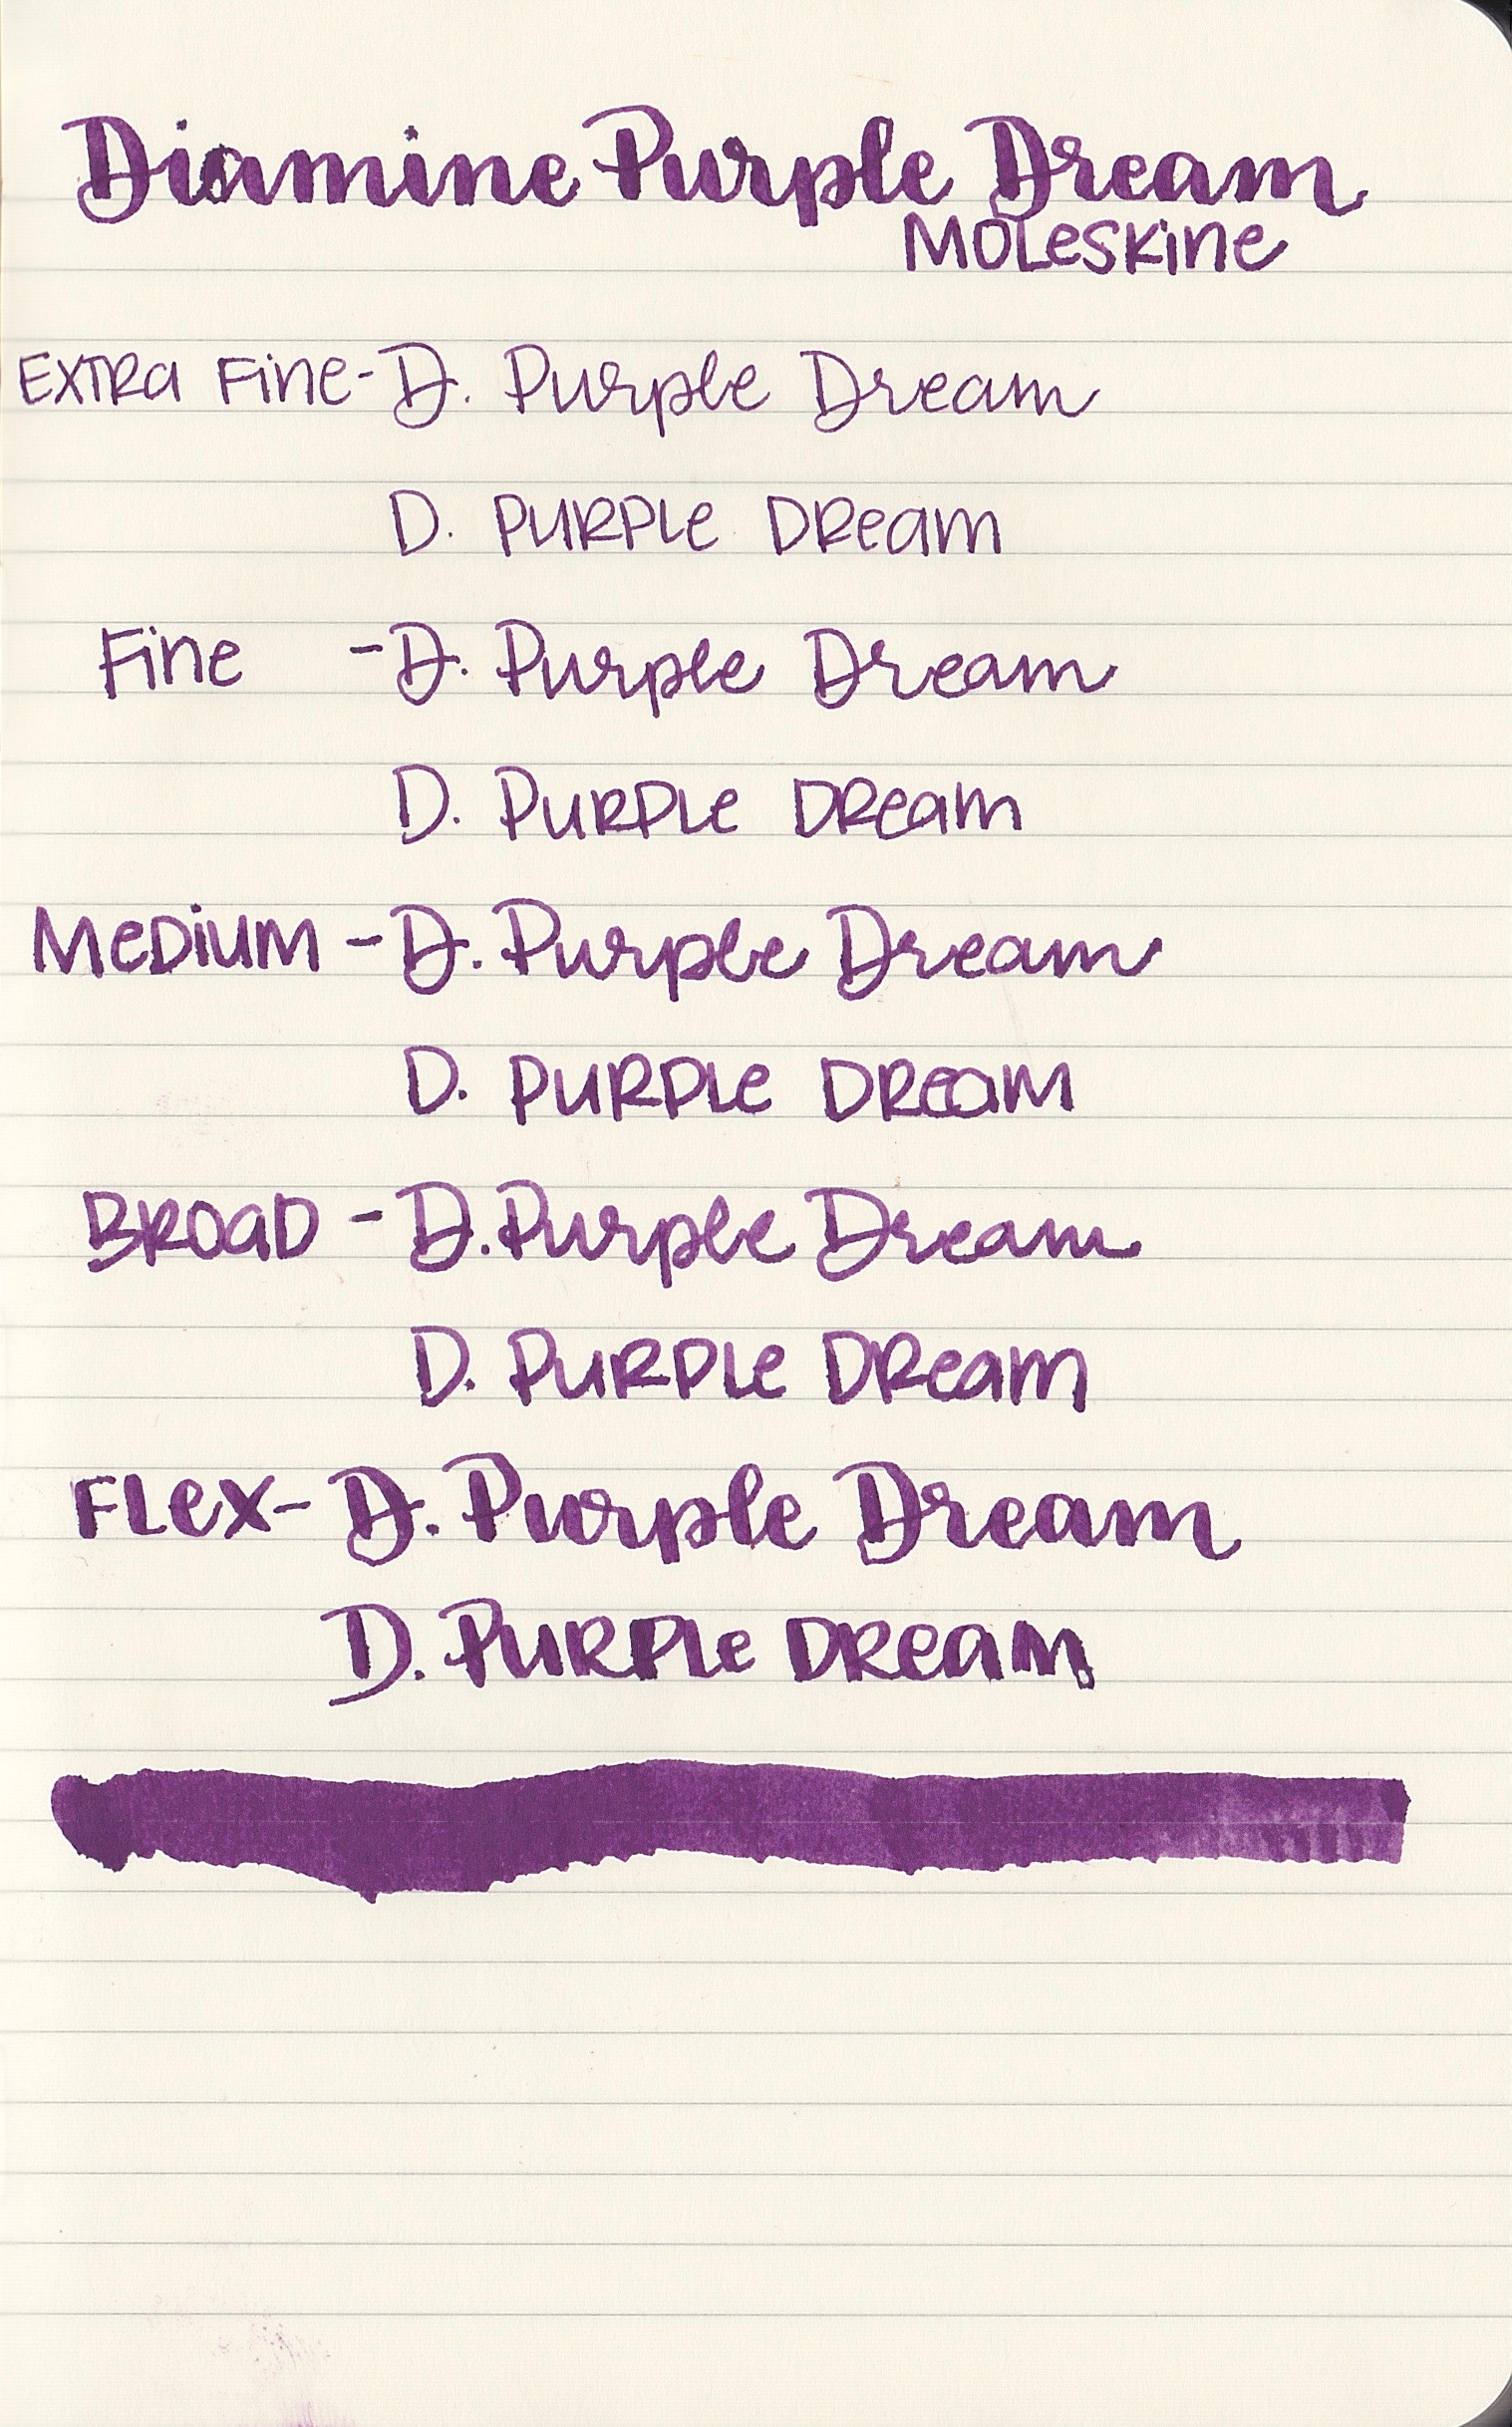 Diamine Purple Dream
Moleskine
Extra Fine - D. Purple Dream
D. Purple Dream
Fine - D. Purple Dream
D. Purple Dream
Medium - D. Purple Dream
D. Purple Dream
Broad - D. Purple Dream
D. Purple Dream
Flex - D. Purple Dream
D. Purple Dream